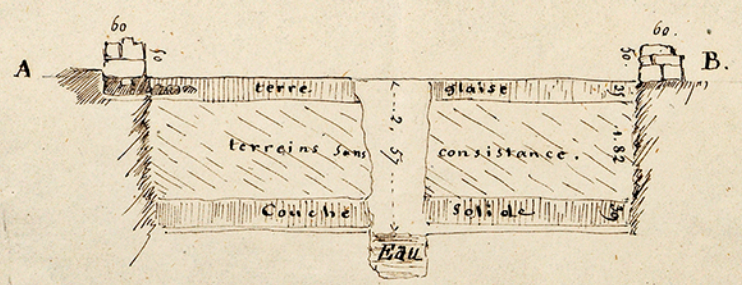 60
60.
50
50.
A
B.
terre
glaise
35
2, 57
terreins sans
consistance.
1.82
Couche
solide
Eau